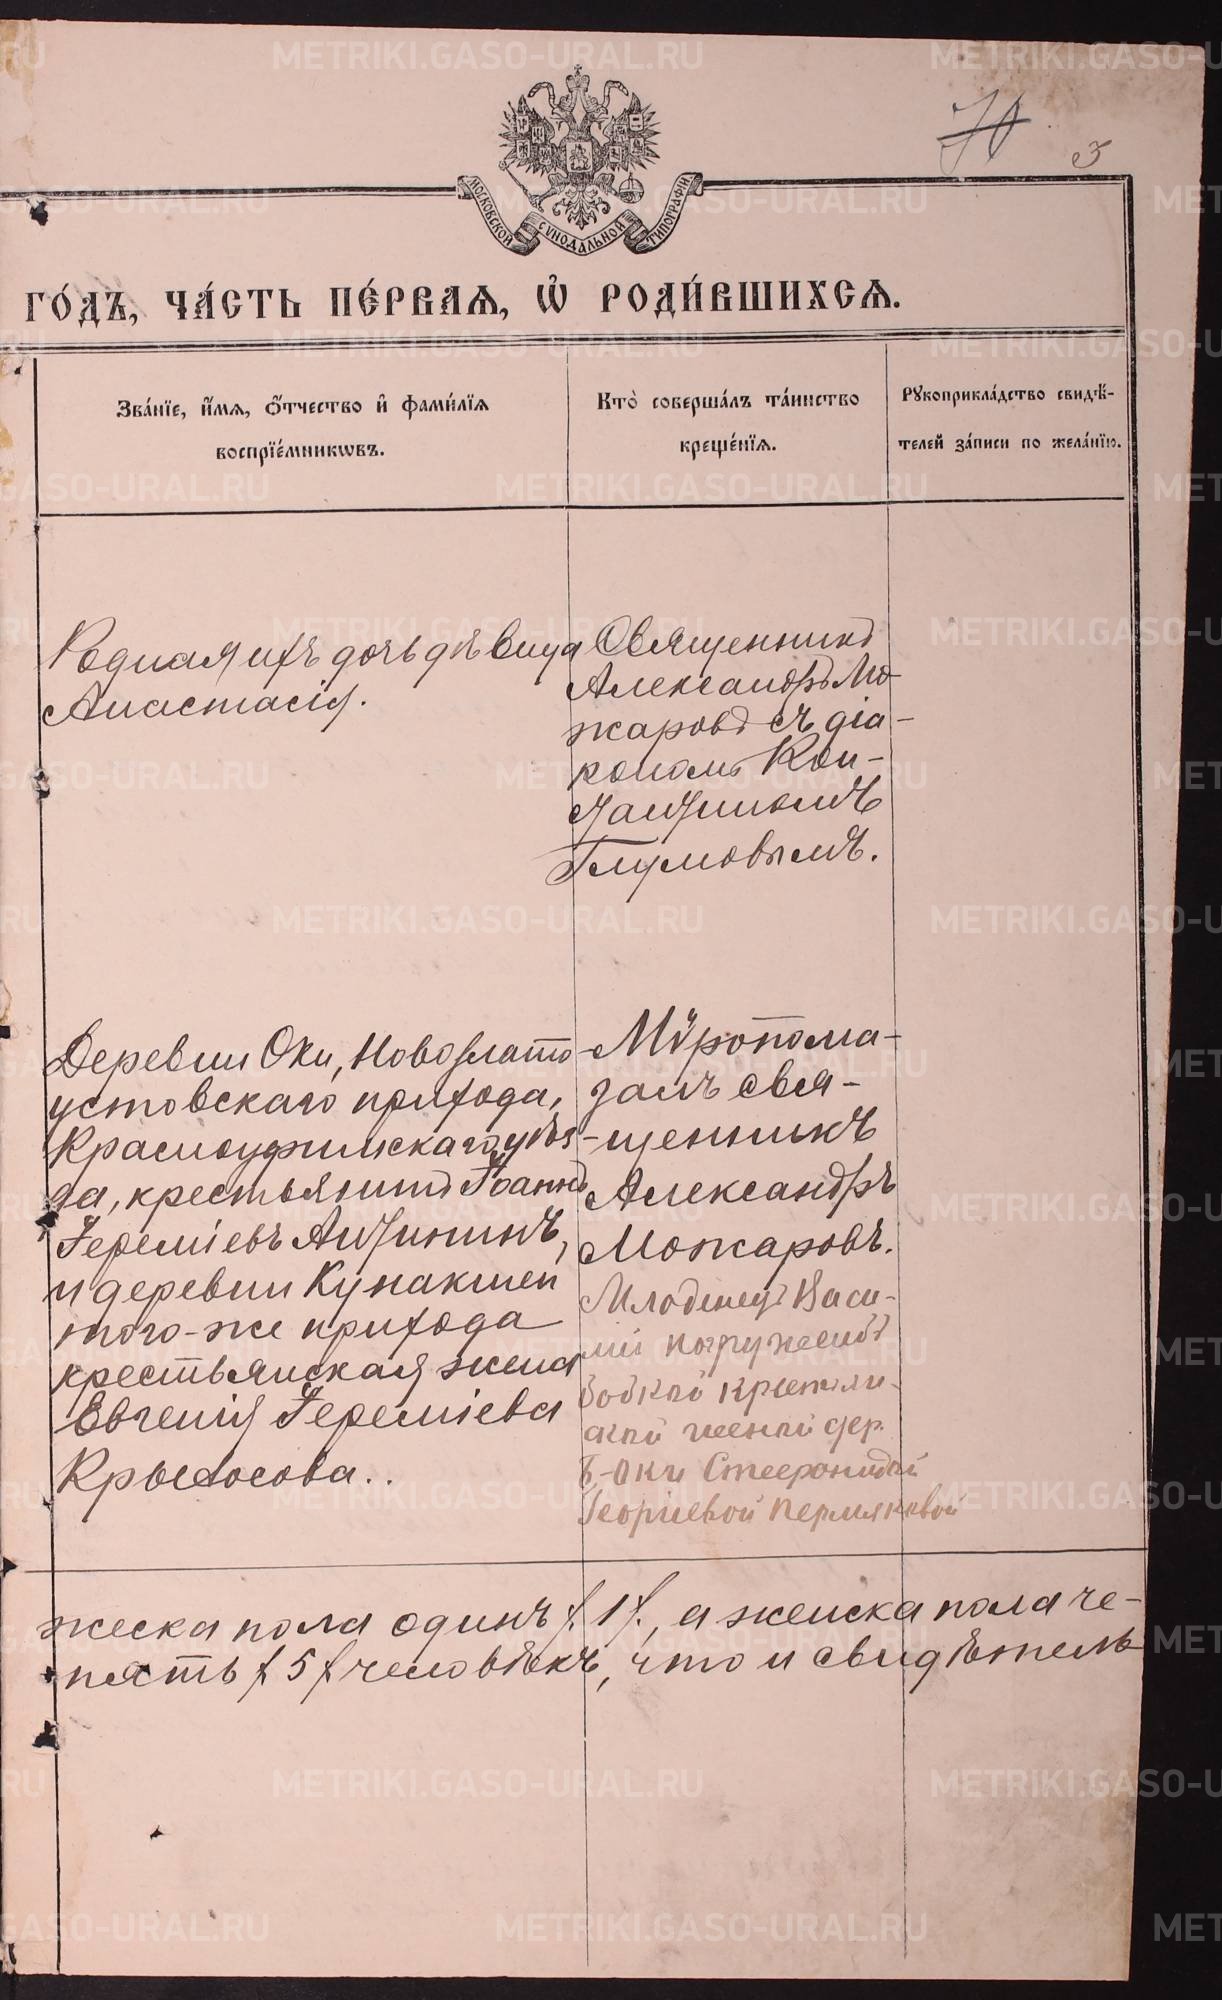 70
3
МОСКОВСКОЙ СѴНОДАЛЬНОЙ ТИПОГРАФІИ
ГО́ДЪ, ЧА́СТЬ ПЕ́РВАѦ, Ѡ҆ РОДИ́ВШИХСѦ.
Зва́нїе, и҆́мѧ, ѻ҆́тчество и҆ фами́лїѧ
воспрїе́мникѡвъ.
Кто̀ соверша́лъ та́инство
креще́нїѧ.
Рꙋкоприкла́дство свидѣ́-
телей за́писи по жела́нїю.
Родная ихъ дочь дѣвица
Анастасія.
Священникъ
Александръ Мо-
жаровъ съ діа-
кономъ Кон-
стантиномъ
Глумовымъ.
Деревни Оки, Новозлато-
устовскаго прихода,
Красноуфимскаго уѣз-
да, крестьянинъ Іоаннъ
Іереміевъ Антипинъ,
и деревни Кунакшей
того-же прихода
крестьянская жена
Евгенія Іереміева
Крылосова..
Мѵропома-
залъ свя-
щенникъ
Александръ
Можаровъ.
Младенецъ Васи-
лий погруженъ
бабкой крестьян-
ской женой дер.
Б-Оки Стефанидой
Георгиевой Пермяковой
жеска пола одинъ /1/, а женска пола че-
пять /5/ человѣкъ, что и свидѣтель